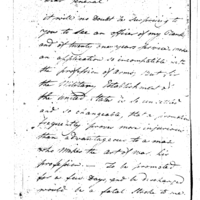 Dear General
It will no doubt be surprising to
you to see an officer of my Rank
and of twenty one years service make
an application so incompatible with
the profession of arms. But, Sir
the Military Establishment of
the United States is so unsettled
and so changeable, that a promotion
frequently proves more injurious
than advantageous to a man
who makes the art of war his
profession — to be promoted
for a few days, and be discharged
would be a fatal stroke to me